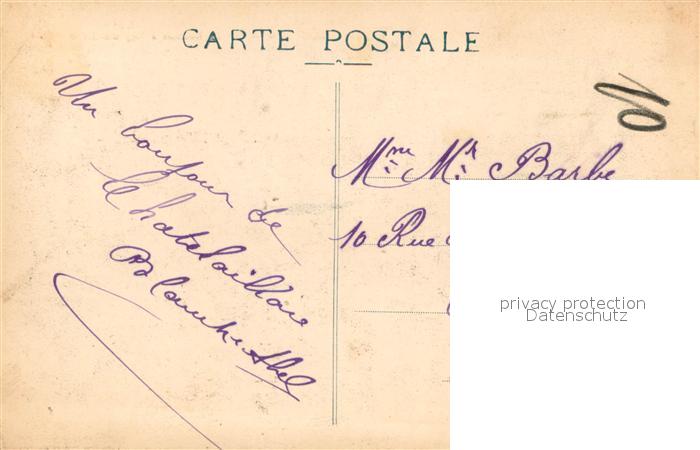 CARTE POSTALE
Un
bonjour de
Chatelaillon
Blanche Abel
Mme Mr Barbe
10 Rue
privacy protection
Datenschutz